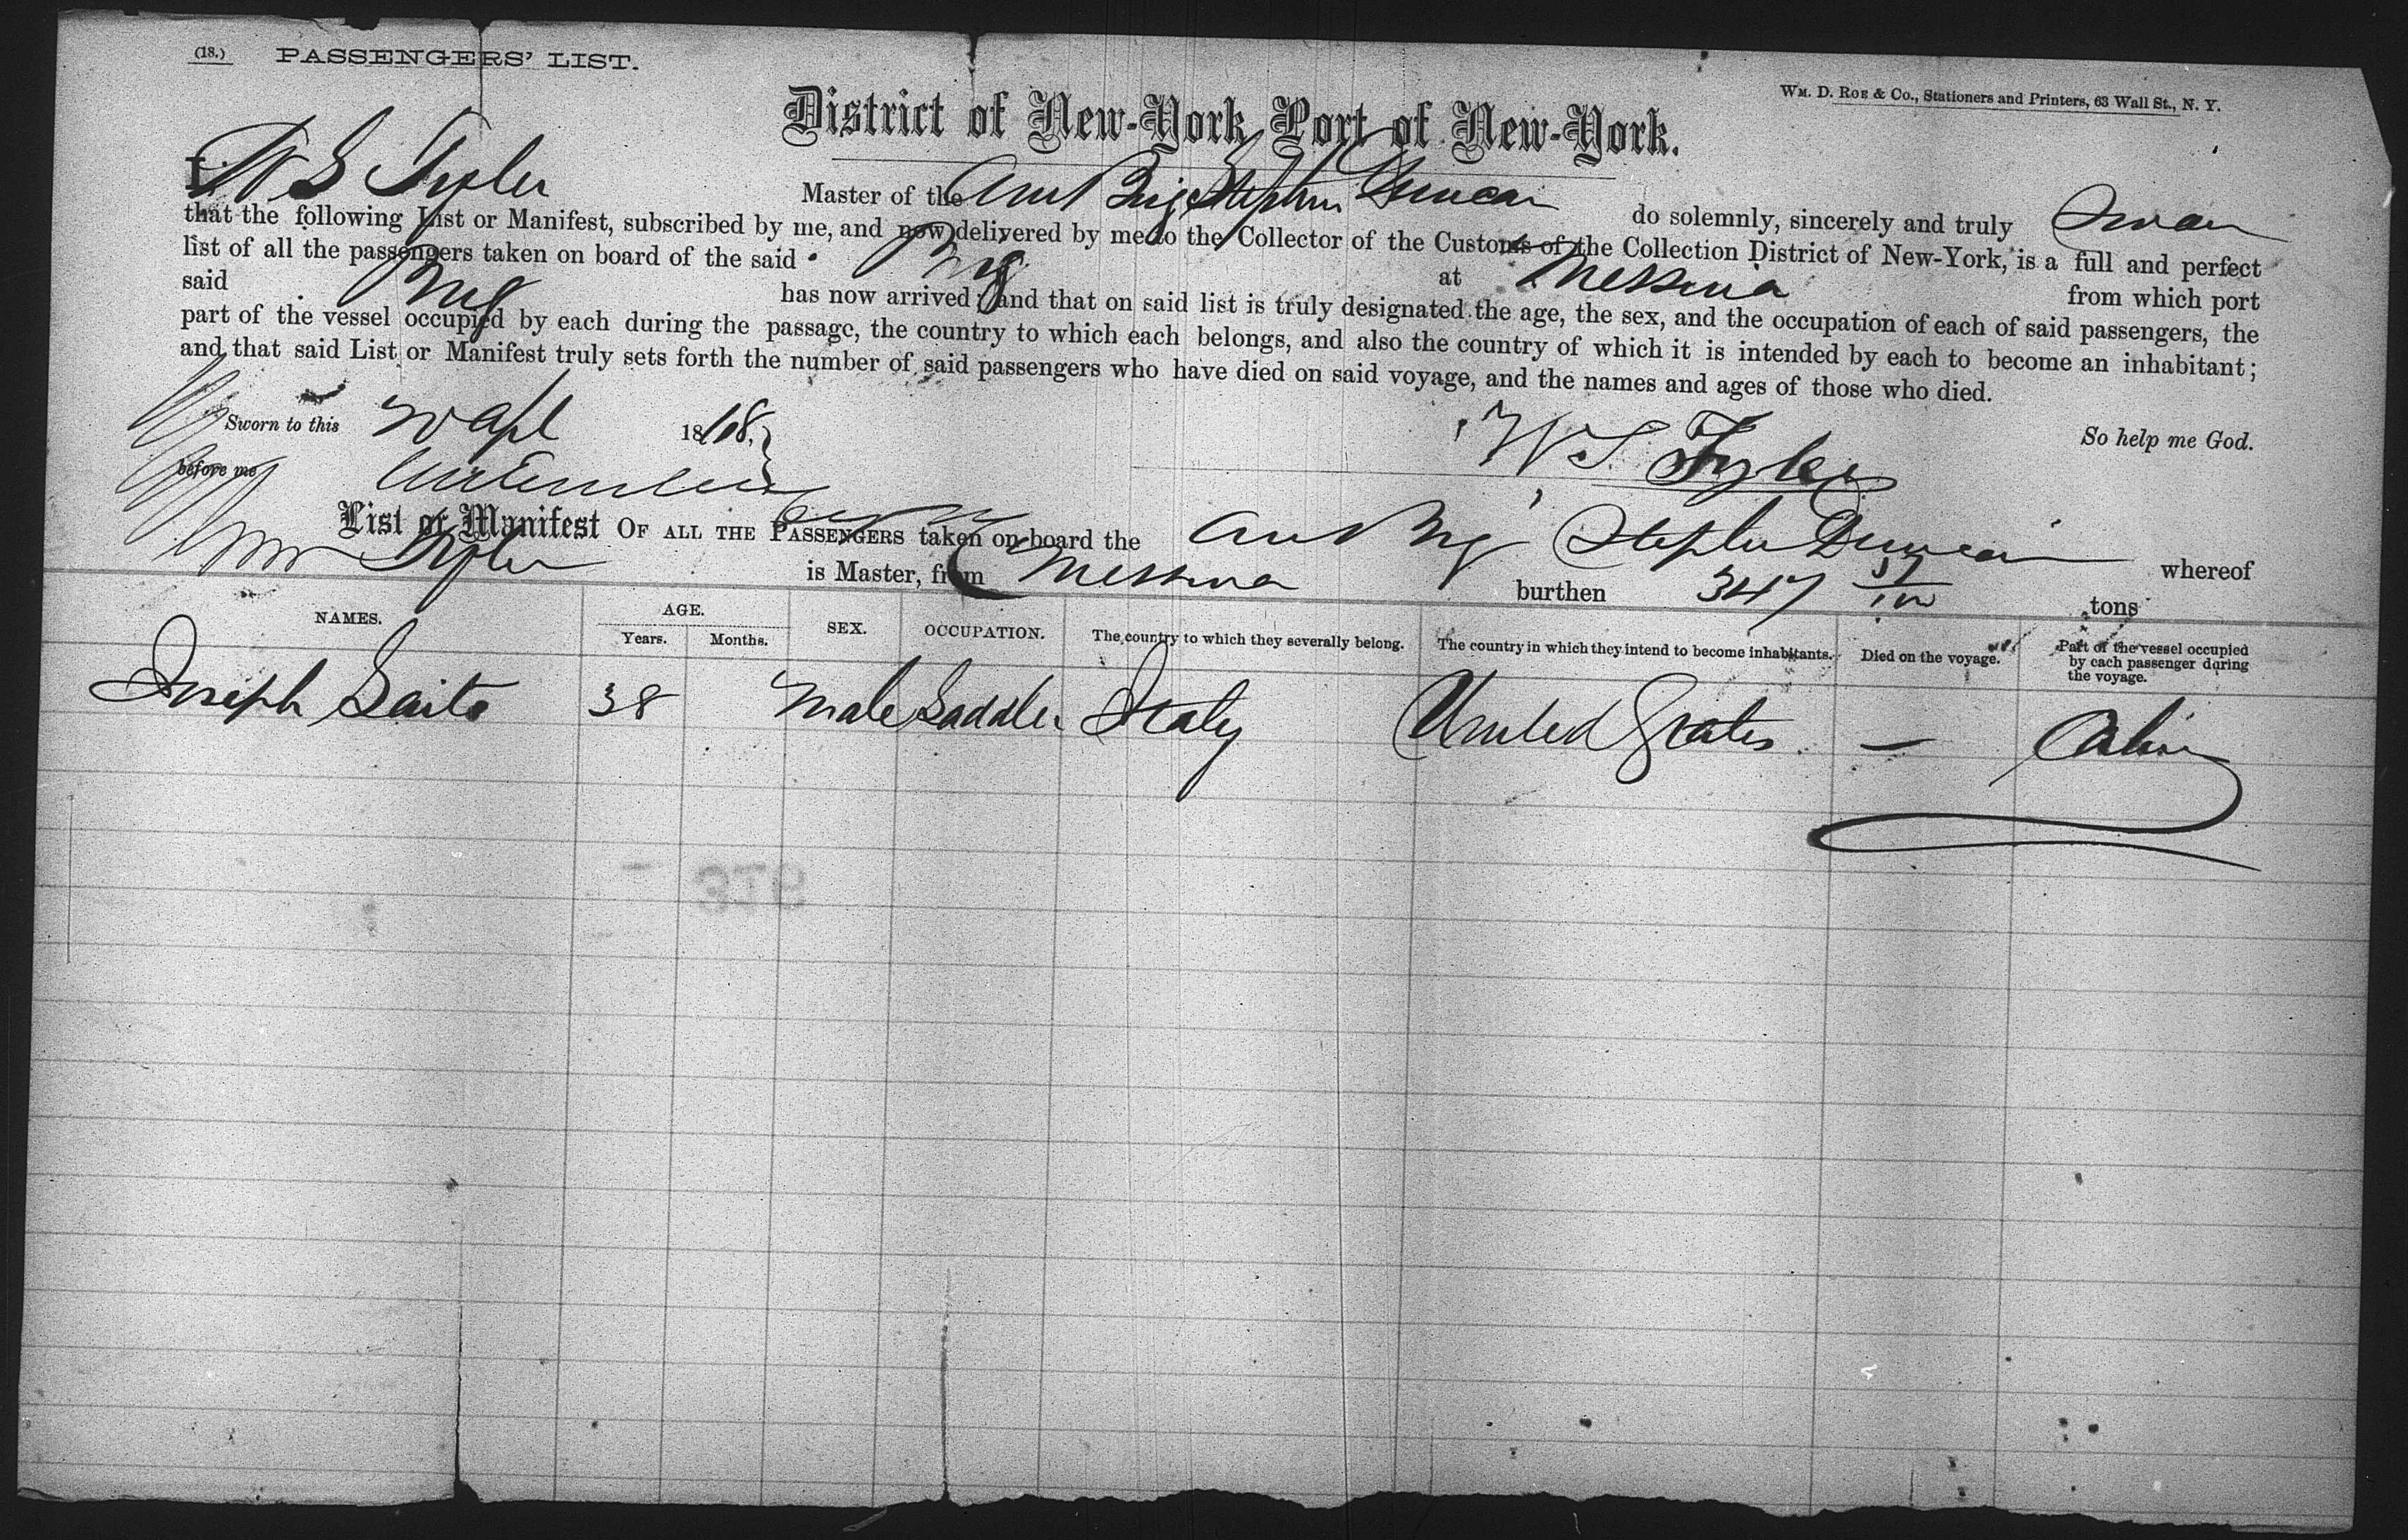 (18.) PASSENGERS' LIST.
WM. D. ROE & CO., Stationers and Printers, 63 Wall St., N. Y.
District of New-York Port of New-York.
I, W S Tyler Master of the Am Brig Stephen Duncan do solemnly, sincerely and truly Swear
that the following List or Manifest, subscribed by me, and now delivered by me to the Collector of the Customs of the Collection District of New-York, is a full and perfect
list of all the passengers taken on board of the said Brig at Messina from which port
said Brig has now arrived; and that on said list is truly designated the age, the sex, and the occupation of each of said passengers, the
part of the vessel occupied by each during the passage, the country to which each belongs, and also the country of which it is intended by each to become an inhabitant;
and that said List or Manifest truly sets forth the number of said passengers who have died on said voyage, and the names and ages of those who died.
So help me God.
Sworn to this Apl 1868,
W S Tyler
before me
List or Manifest OF ALL THE PASSENGERS taken on board the Am Brig Stephen Duncan whereof
Tyler is Master, from Messina burthen 347 tons
NAMES. AGE. Years. Months. SEX. OCCUPATION. The country to which they severally belong. The country in which they intend to become inhabitants. Died on the voyage. Part of the vessel occupied by each passenger during the voyage.
Joseph Saito 38 Male Saddler Italy United States — Cabin